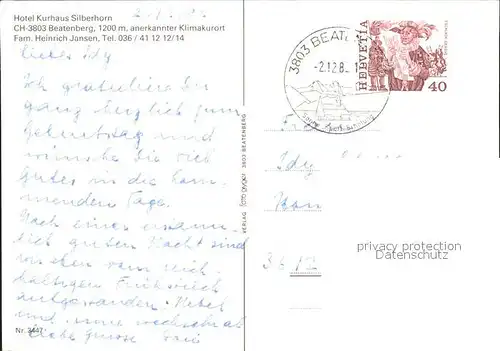 Hotel Kurhaus Silberhorn
CH-3803 Beatenberg, 1200 m, anerkannter Klimakurort
Fam. Heinrich Jansen, Tel. 036 / 41 12 12/14
Liebes Idy
Ich gratuliere Dir
ganz herzlich zum
Geburtstag und
wünsche Dir viel
gutes in die kom-
menden Tage.
Nach einer erstaun-
lich guten Nacht sind
wir eben vom reich-
haltigen Frühstück
aufgestanden. Nebel
und Sonne wechseln ab
Liebe Grüsse
Nr. 3447
VERLAG FOTO 3803 BEATENBERG
3803 BEATENBERG
-2.12.8
HELVETIA
40
Idy
3612
privacy protection
Datenschutz